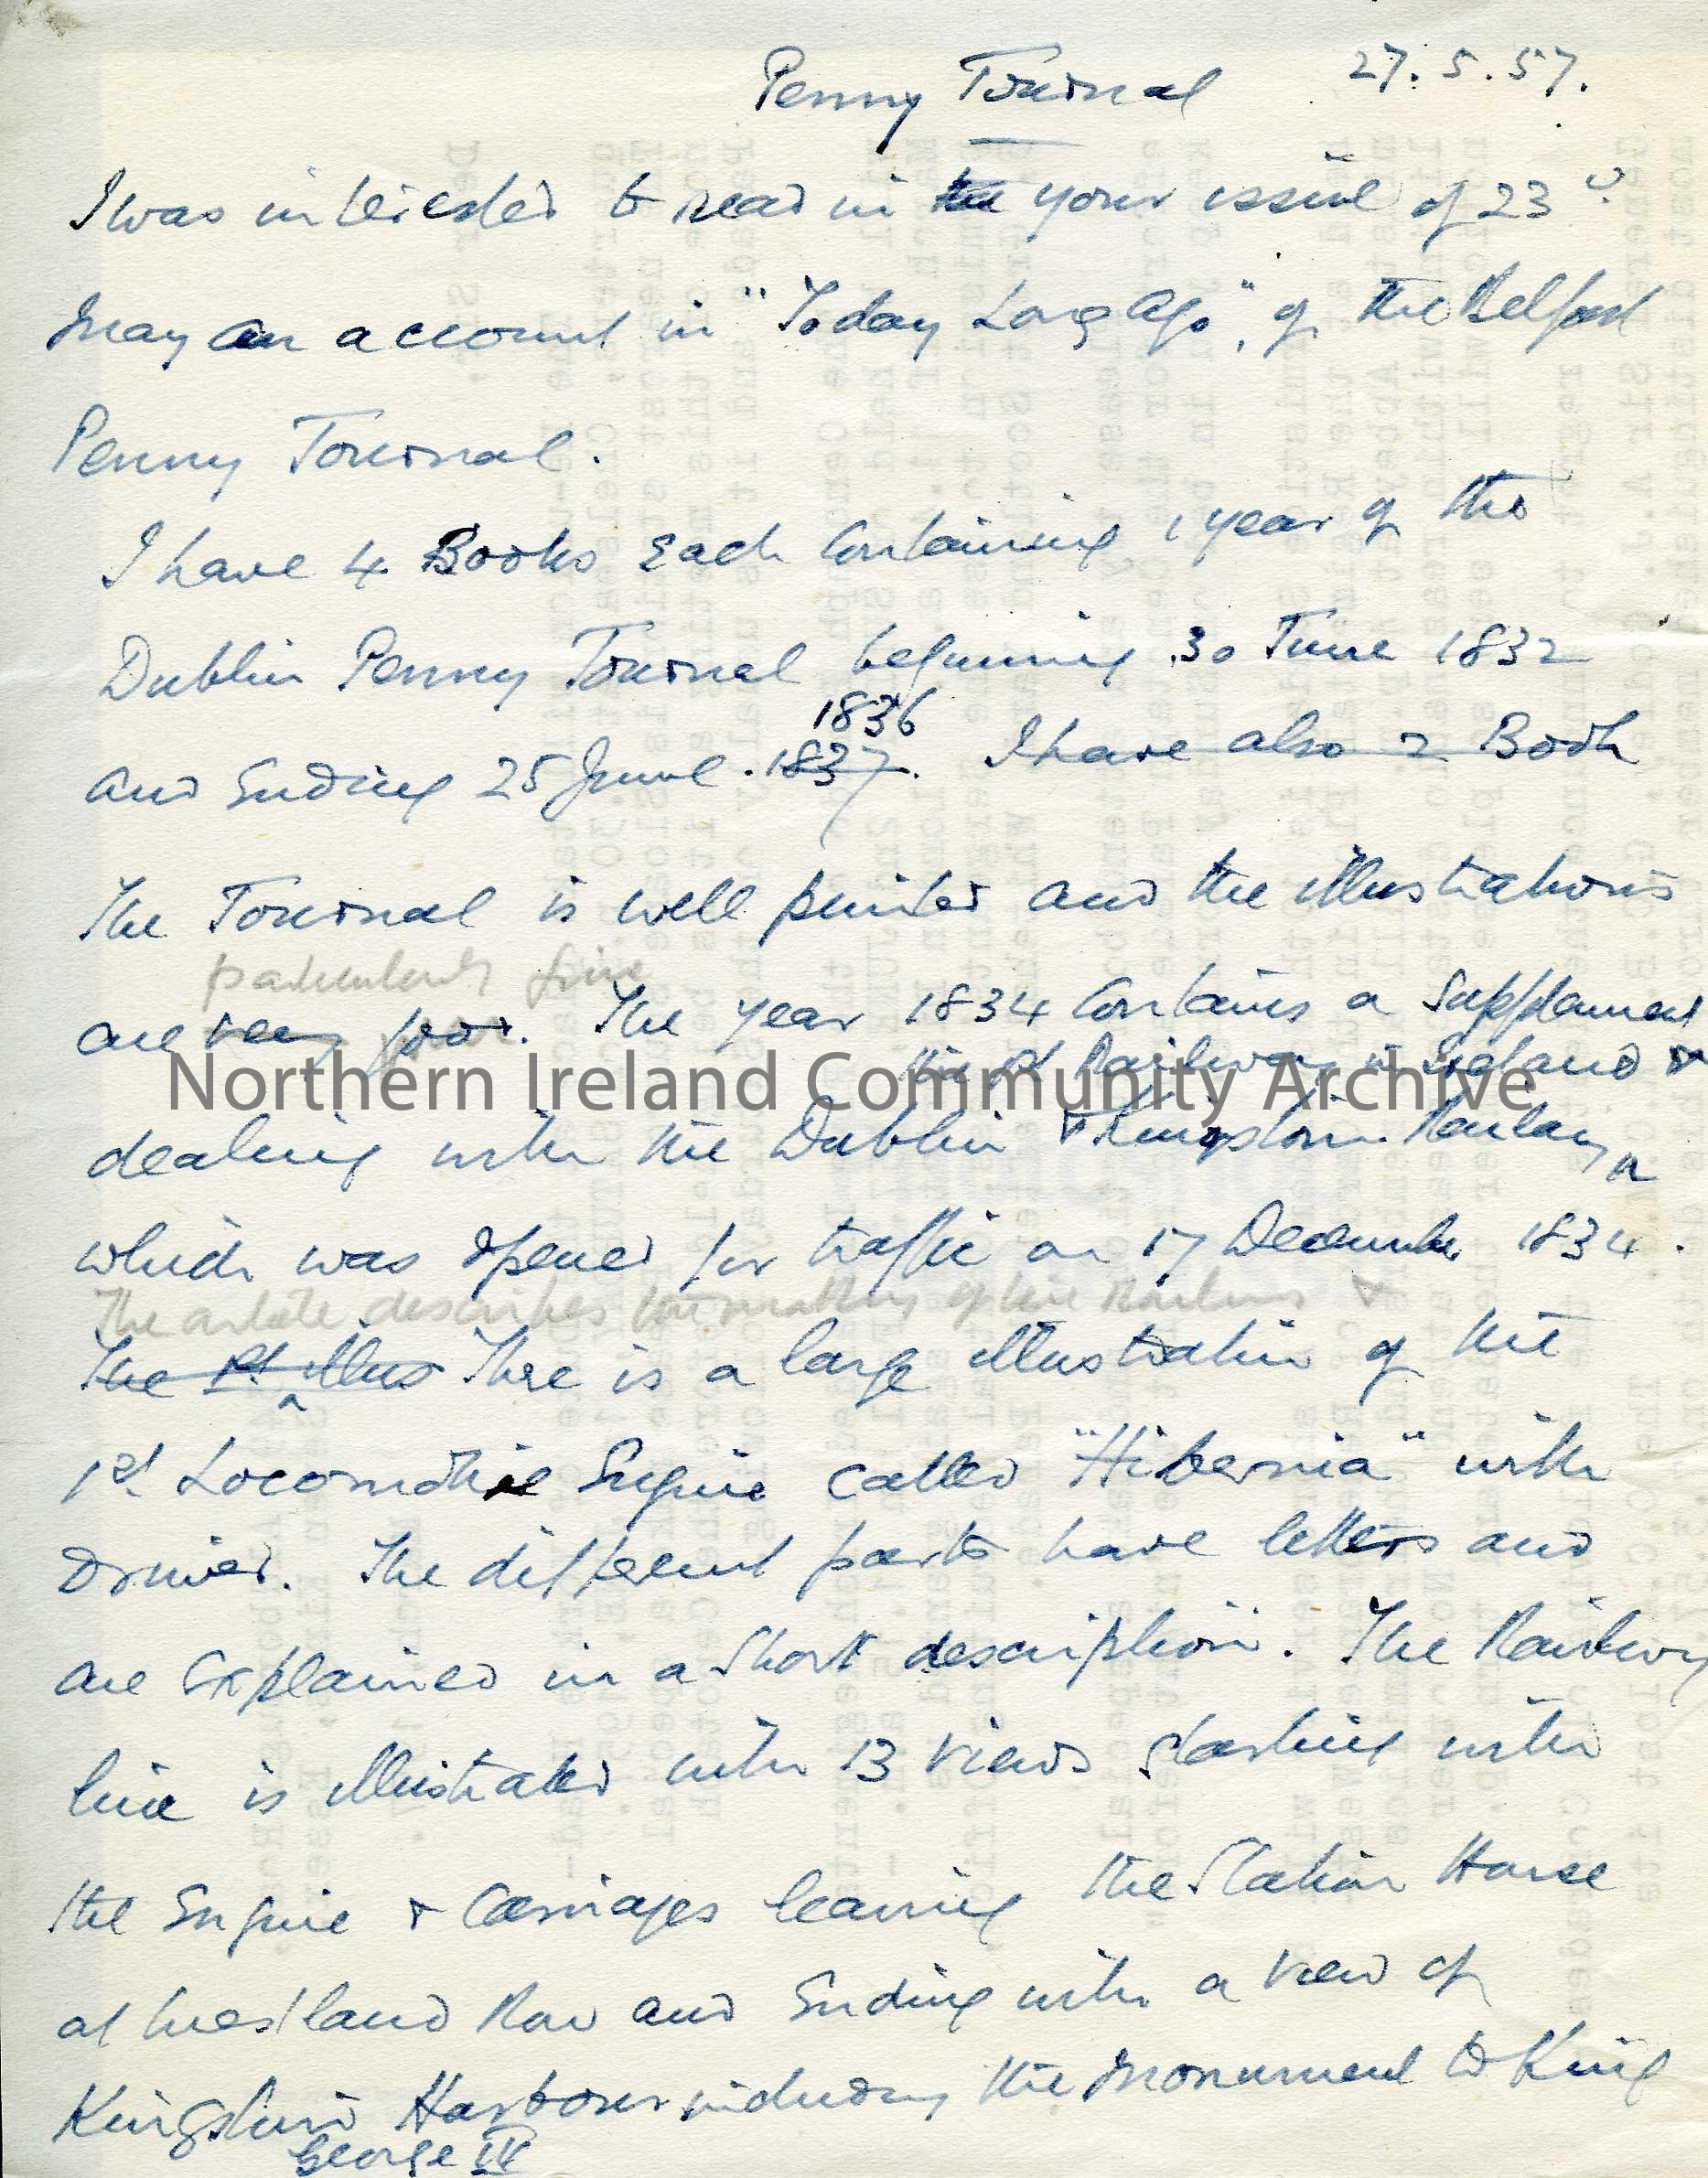 Penny Journal 27.5.57.
I was interested to read in the your issue of 23
May an account in "Today Long Ago", of the Belfast
Penny Journal.
I have 4 Books each containing 1 year of the
Dublin Penny Journal beginning 30 June 1832
1836
and Ending 25 June 1837. I have also 2 Book
The Journal is well printed and the illustrations
particularly fine
are very poor. The year 1834 contains a Supplement
the 1st Railway in Ireland &
Northern Ireland Community Archive
dealing with the Dublin & Kingstown Railway
which was opened for traffic on 17 December 1834.
The article describes the making of the Railway &
The 1st illus There is a large illustration of the
1st Locomotive Engine called "Hibernia" with
Driver. The different parts have letters and
are explained in a short description. The Railway
line is illustrated with 13 views starting with
the Engine & Carriages leaving the Station House
at Westland Row and Ending with a view of
Kingstown Harbour including the Monument to King
George IV